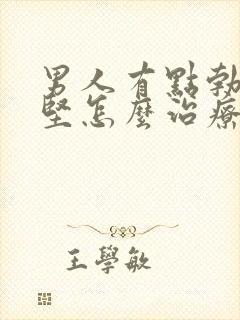 男人有點勃
堅怎麼治療
王學敏